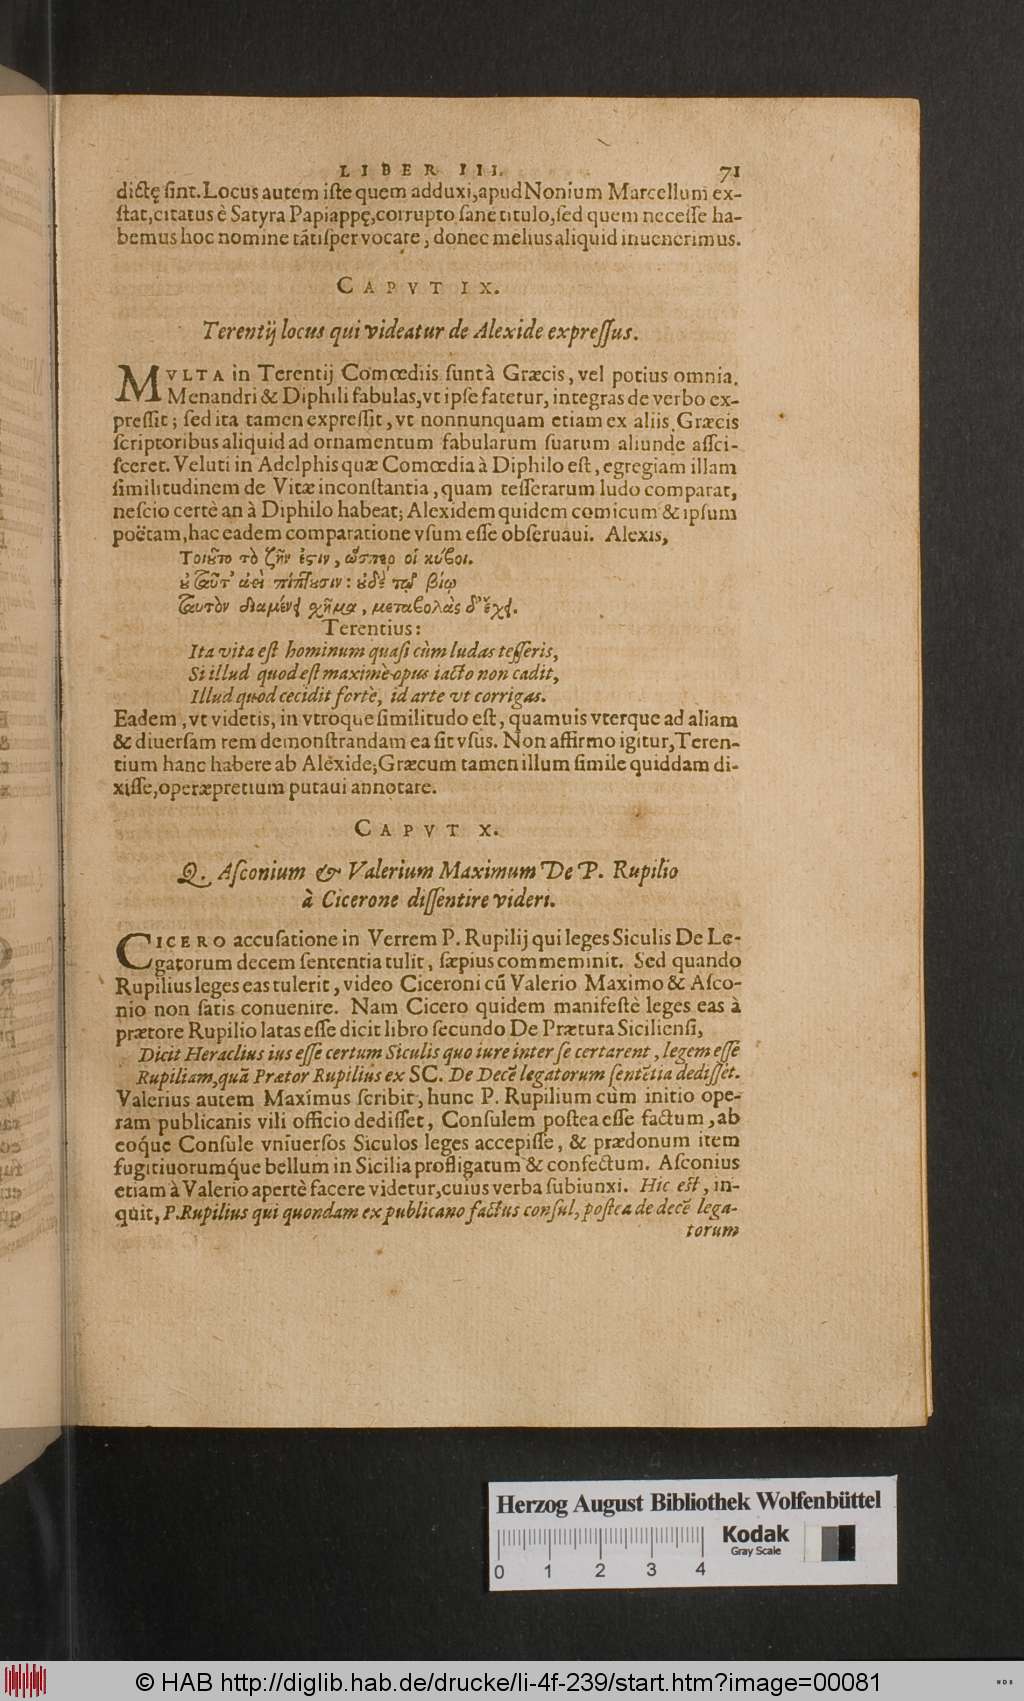 LIBER III. 71
dictę ſint. Locus autem iſte quem adduxi, apud Nonium Marcellum ex-
ſtat, citatus è Satyra Papiappę, corrupto ſanè titulo, ſed quem neceſſe ha-
bemus hoc nomine tātiſper vocare, donec melius aliquid inuenerimus.
CAPVT IX.
Terentij locus qui videatur de Alexide expreſſus.
MVLTA in Terentij Comœdiis ſunt à Græcis, vel potius omnia.
Menandri & Diphili fabulas, vt ipſe fatetur, integras de verbo ex-
preſſit; ſed ita tamen expreſſit, vt nonnunquam etiam ex aliis Græcis
ſcriptoribus aliquid ad ornamentum fabularum ſuarum aliunde aſſci-
ſceret. Veluti in Adelphis quæ Comœdia à Diphilo eſt, egregiam illam
ſimilitudinem de Vitæ inconſtantia, quam teſſerarum ludo comparat,
neſcio certè an à Diphilo habeat; Alexidem quidem comicum & ipſum
poëtam, hac eadem comparatione vſum eſſe obſeruaui. Alexis,
Τοιοῦτο τὸ ζῆν ἐστιν, ὥσπερ οἱ κύβοι.
οὐ ταῦτ᾽ ἀεὶ πίπτουσιν: οὐδὲ τῷ βίῳ
ταυτὸν διαμένει χῆμα, μεταβολὰς δ᾽ ἔχει.
Terentius:
Ita vita eſt hominum quaſi cùm ludas teſſeris,
Si illud quod eſt maximè opus iacto non cadit,
Illud quod cecidit fortè, id arte vt corrigas.
Eadem, vt videtis, in vtroque ſimilitudo eſt, quamuis vterque ad aliam
& diuerſam rem demonſtrandam ea ſit vſus. Non affirmo igitur, Teren-
tium hanc habere ab Alexide; Græcum tamen illum ſimile quiddam di-
xiſſe, operæpretium putaui annotare.
CAPVT X.
Q. Aſconium & Valerium Maximum De P. Rupilio
à Cicerone diſſentire videri.
CICERO accuſatione in Verrem P. Rupilij qui leges Siculis De Le-
gatorum decem ſententia tulit, ſæpius commeminit. Sed quando
Rupilius leges eas tulerit, video Ciceroni cū Valerio Maximo & Aſco-
nio non ſatis conuenire. Nam Cicero quidem manifeſtè leges eas à
prætore Rupilio latas eſſe dicit libro ſecundo De Prætura Sicilienſi,
Dicit Heraclius ius eſſe certum Siculis quo iure inter ſe certarent, legem eſſe
Rupiliam, quā Prætor Rupilius ex SC. De Decē legatorum ſentētia dediſſet.
Valerius autem Maximus ſcribit, hunc P. Rupilium cùm initio ope-
ram publicanis vili officio dediſſet, Conſulem poſtea eſſe factum, ab
eoq́ue Conſule vniuerſos Siculos leges accepiſſe, & prædonum item
fugitiuorumq́ue bellum in Sicilia profligatum & confectum. Aſconius
etiam à Valerio apertè facere videtur, cuius verba ſubiunxi. Hic eſt, in-
quit, P. Rupilius qui quondam ex publicano factus conſul, poſtea de decē lega-
torum
Herzog August Bibliothek Wolfenbüttel
Kodak
Gray Scale
0 1 2 3 4
© HAB http://diglib.hab.de/drucke/li-4f-239/start.htm?image=00081